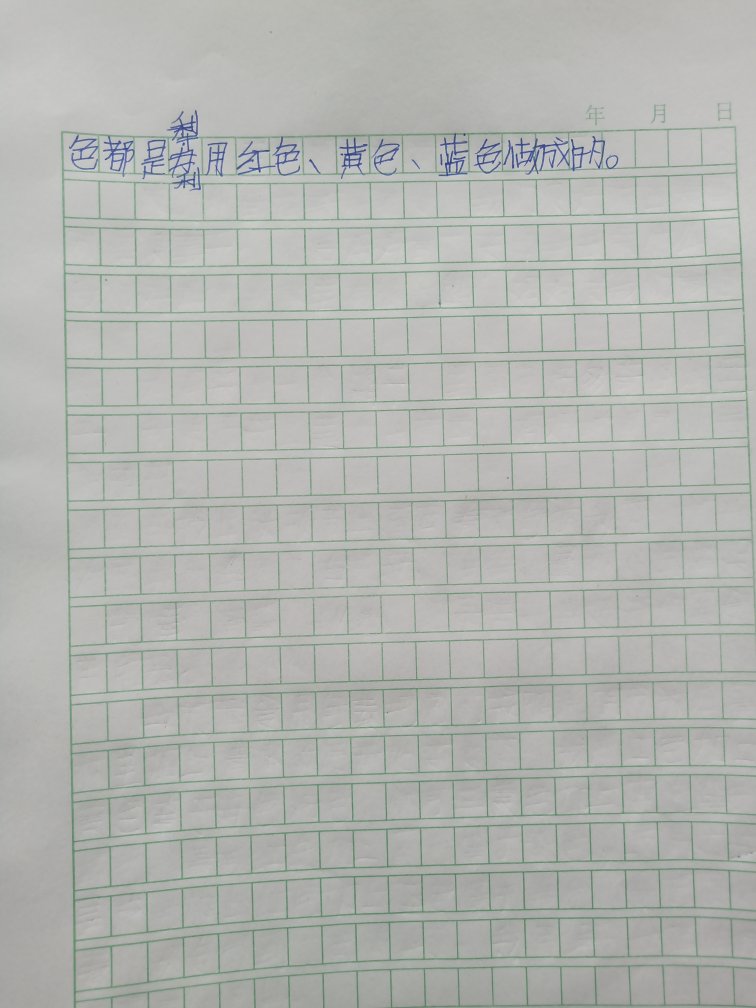 年 月 日
色都是利用红色、黄色、蓝色做成的。